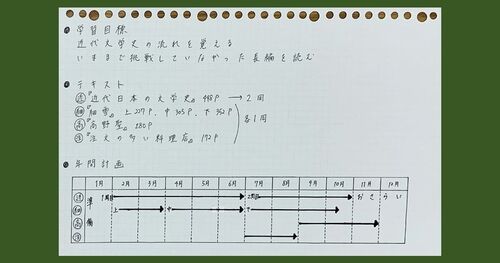 学習目標
近代文学史の流れを覚える
いままで挑戦していなかった長編を読む
テキスト
近『近代日本の文学史』448P → 2周
細『細雪』上227P、中305P、下352P
高『高野聖』180P
注『注文の多い料理店』172P
各1周
年間計画
1月 2月 3月 4月 5月 6月 7月 8月 9月 10月 11月 12月
準備
1周目 2周目 おさらい
細 上 中
高
注